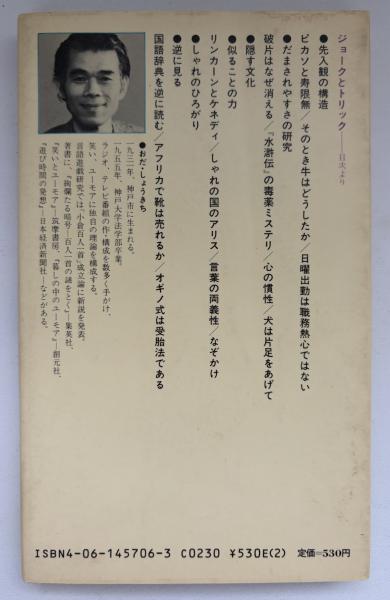 ジョークとトリック——目次より
●先入観の構造
ピカソと寿限無／そのとき牛はどうしたか／日曜出勤は職務熱心ではない
●だまされやすさの研究
破片はなぜ消える／『水滸伝』の毒薬ミステリ／心の慣性／犬は片足をあげて
●隠す文化
●似ることの力
リンカーンとケネディ／しゃれの国のアリス／言葉の両義性／なぞかけ
●しゃれのひろがり
●逆に見る
国語辞典を逆に読む／アフリカで靴は売れるか／オギノ式は受胎法である
●おだ・しょうきち
一九三一年、神戸市に生まれる。
一九五五年、神戸大学法学部卒業。
ラジオ、テレビ番組の作・構成を数多く手がけ、
笑い、ユーモアに独自の理論を構成する。
言語遊戯研究では、「小倉百人一首」成立論に新説を発表。
著書に、『絢爛たる暗号—百人一首の謎をとく』—集英社、
『笑いとユーモア』—筑摩書房、『暮しの中のユーモア』—創元社、
『遊び時間の発想』—日本経済新聞社—などがある。
ISBN4-06-145706-3 C0230 ¥530E(2) 定価=530円